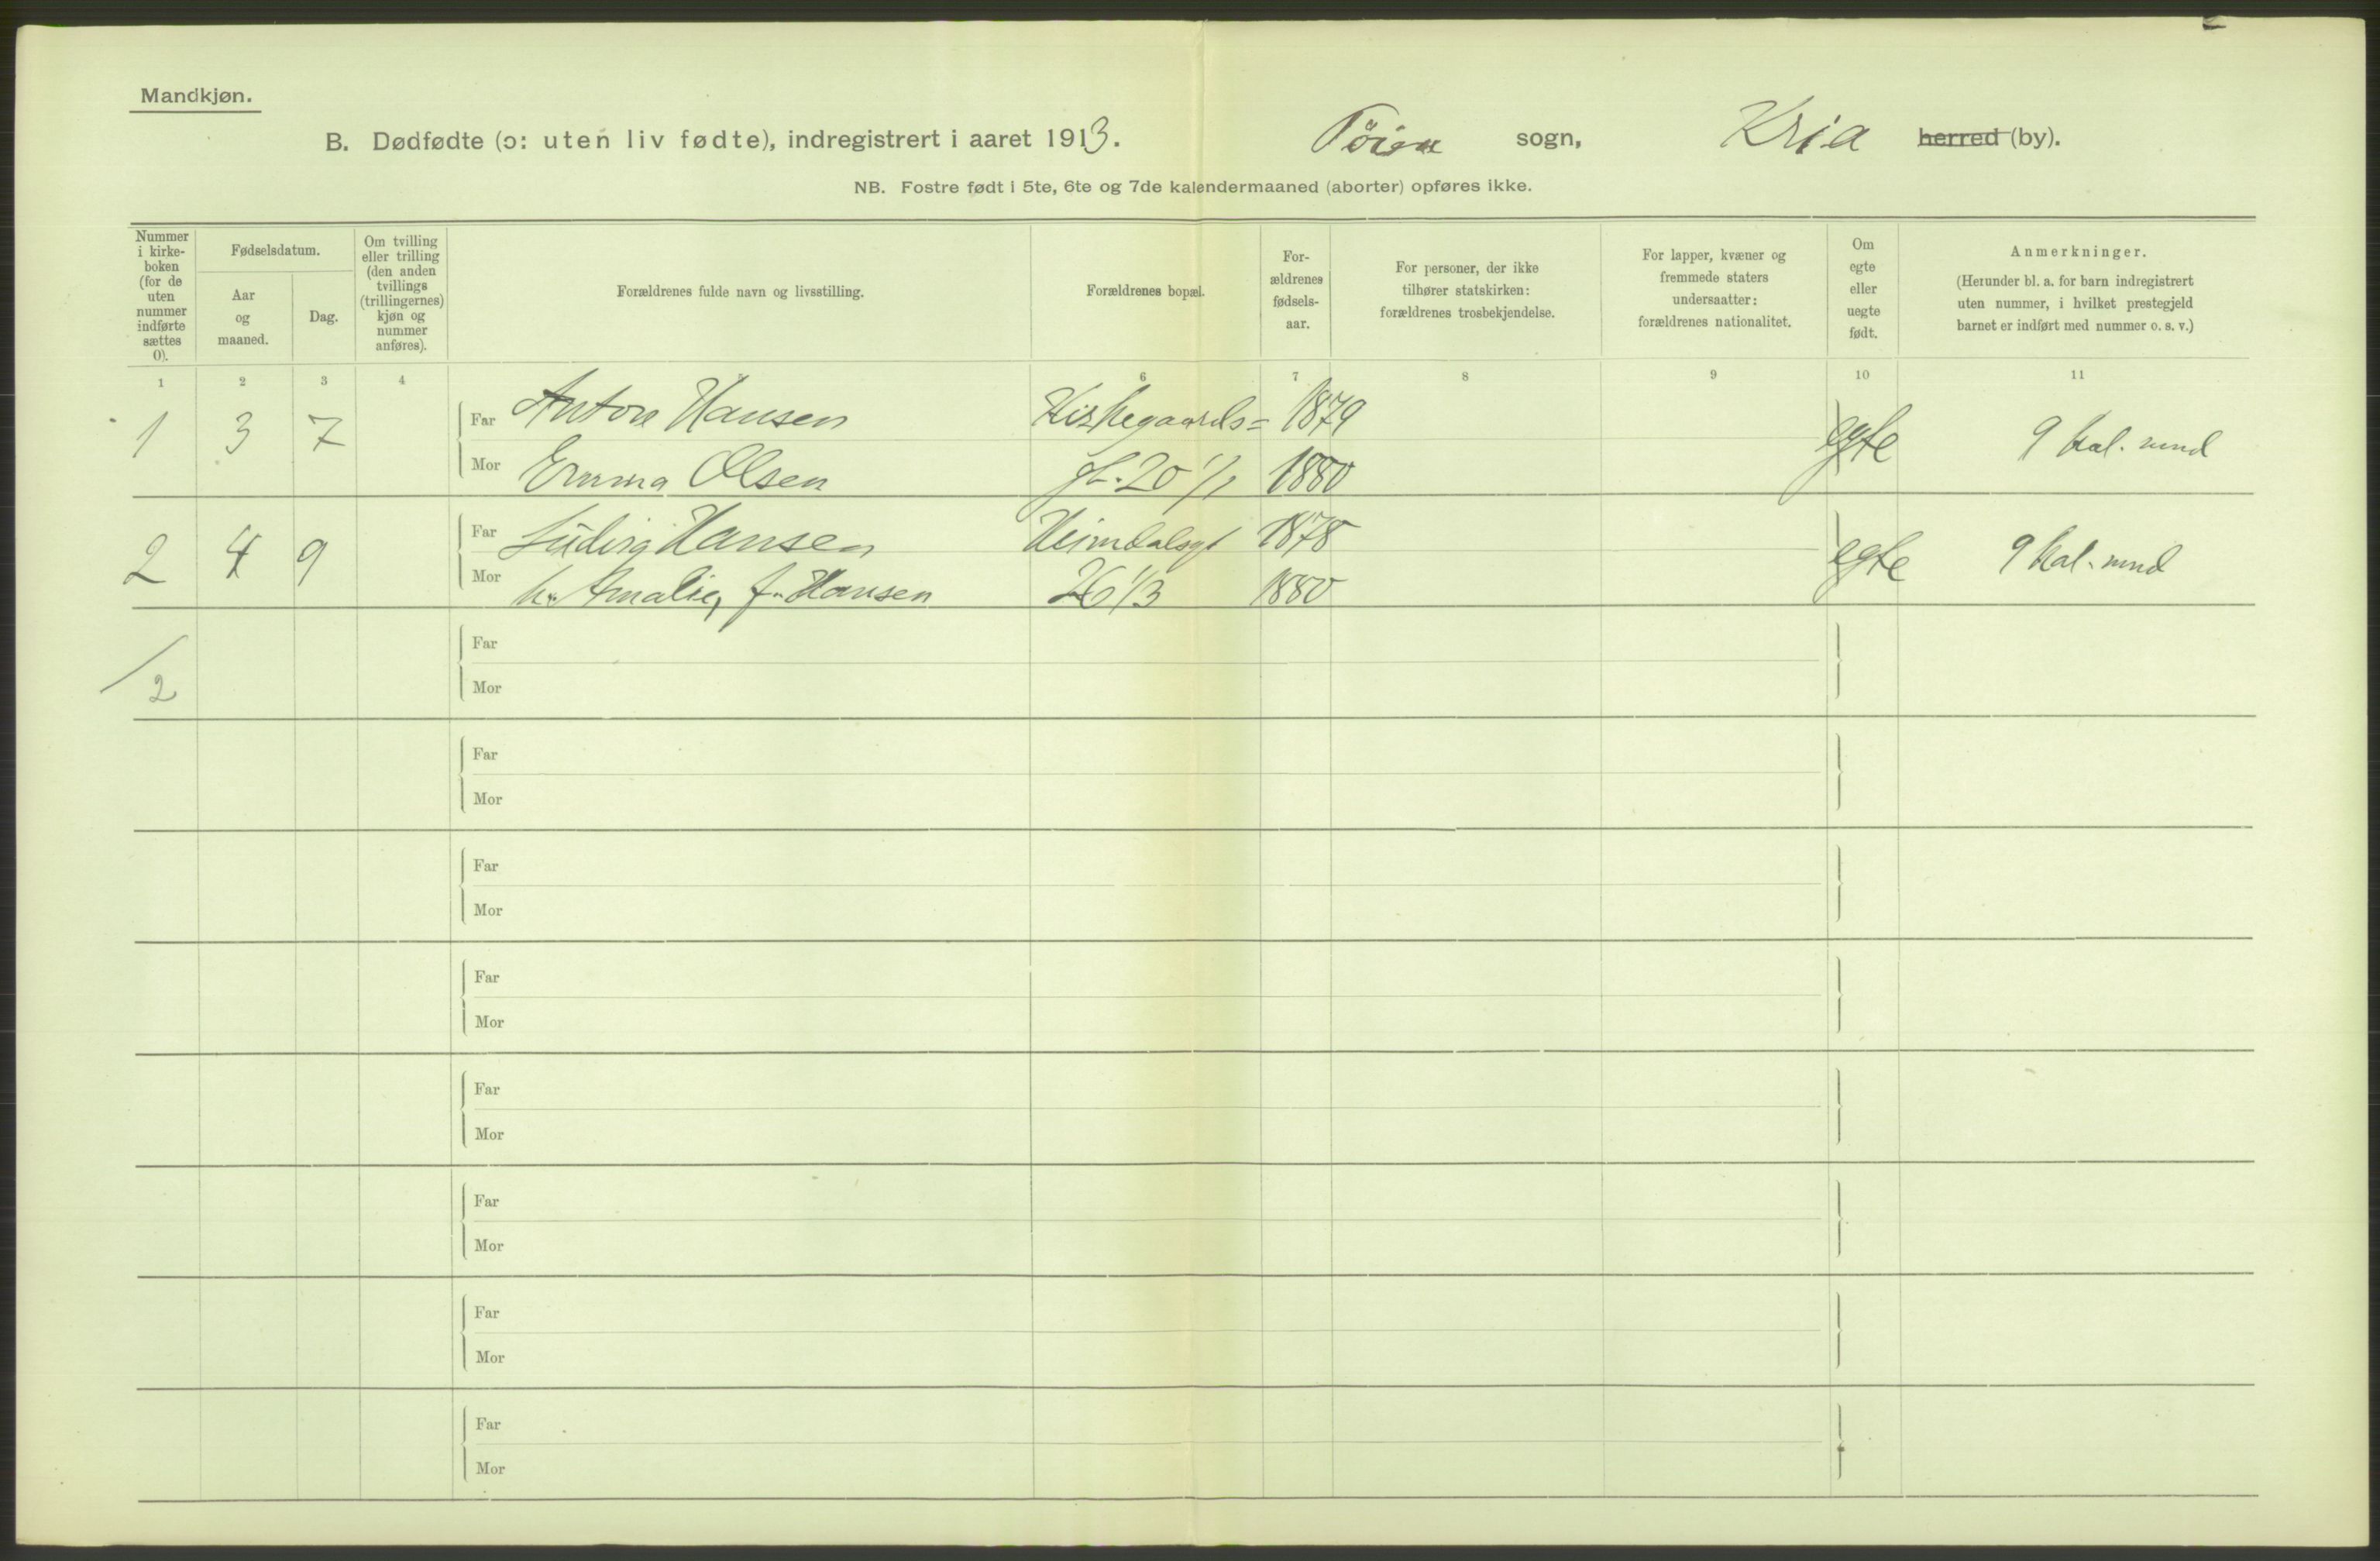 Mandkjøn.
B. Dødfødte (ɔ: uten liv fødte), indregistrert i aaret 1913. Tøien sogn, Kria herred (by).
NB. Fostre født i 5te, 6te og 7de kalendermaaned (aborter) opføres ikke.
Nummer i kirke-boken (for de uten nummer indførte sættes 0).
Fødselsdatum.
Aar og maaned.
Dag.
Om tvilling eller trilling (den anden tvillings (trillingernes) kjøn og nummer anføres).
Forældrenes fulde navn og livsstilling.
Forældrenes bopæl.
For-ældrenes fødsels-aar.
For personer, der ikke tilhører statskirken: forældrenes trosbekjendelse.
For lapper, kvæner og fremmede staters undersaatter: forældrenes nationalitet.
Om egte eller uegte født.
Anmerkninger.
(Herunder bl. a. for barn indregistrert uten nummer, i hvilket prestegjeld barnet er indført med nummer o. s. v.)
1 2 3 4 5 6 7 8 9 10 11
1 3 7 Far Anton Hansen Kirkegaards= 1879 egte 9 kal. mnd
Mor Emma Olsen gt. 20 1/1 1880
2 4 9 Far Ludvig Hansen Heimdalsgt 1878 egte 9 kal. mnd
Mor h. Amalie, f. Hansen 26 1/3 1880
Far
2 Mor
Far
Mor
Far
Mor
Far
Mor
Far
Mor
Far
Mor
Far
Mor
Far
Mor